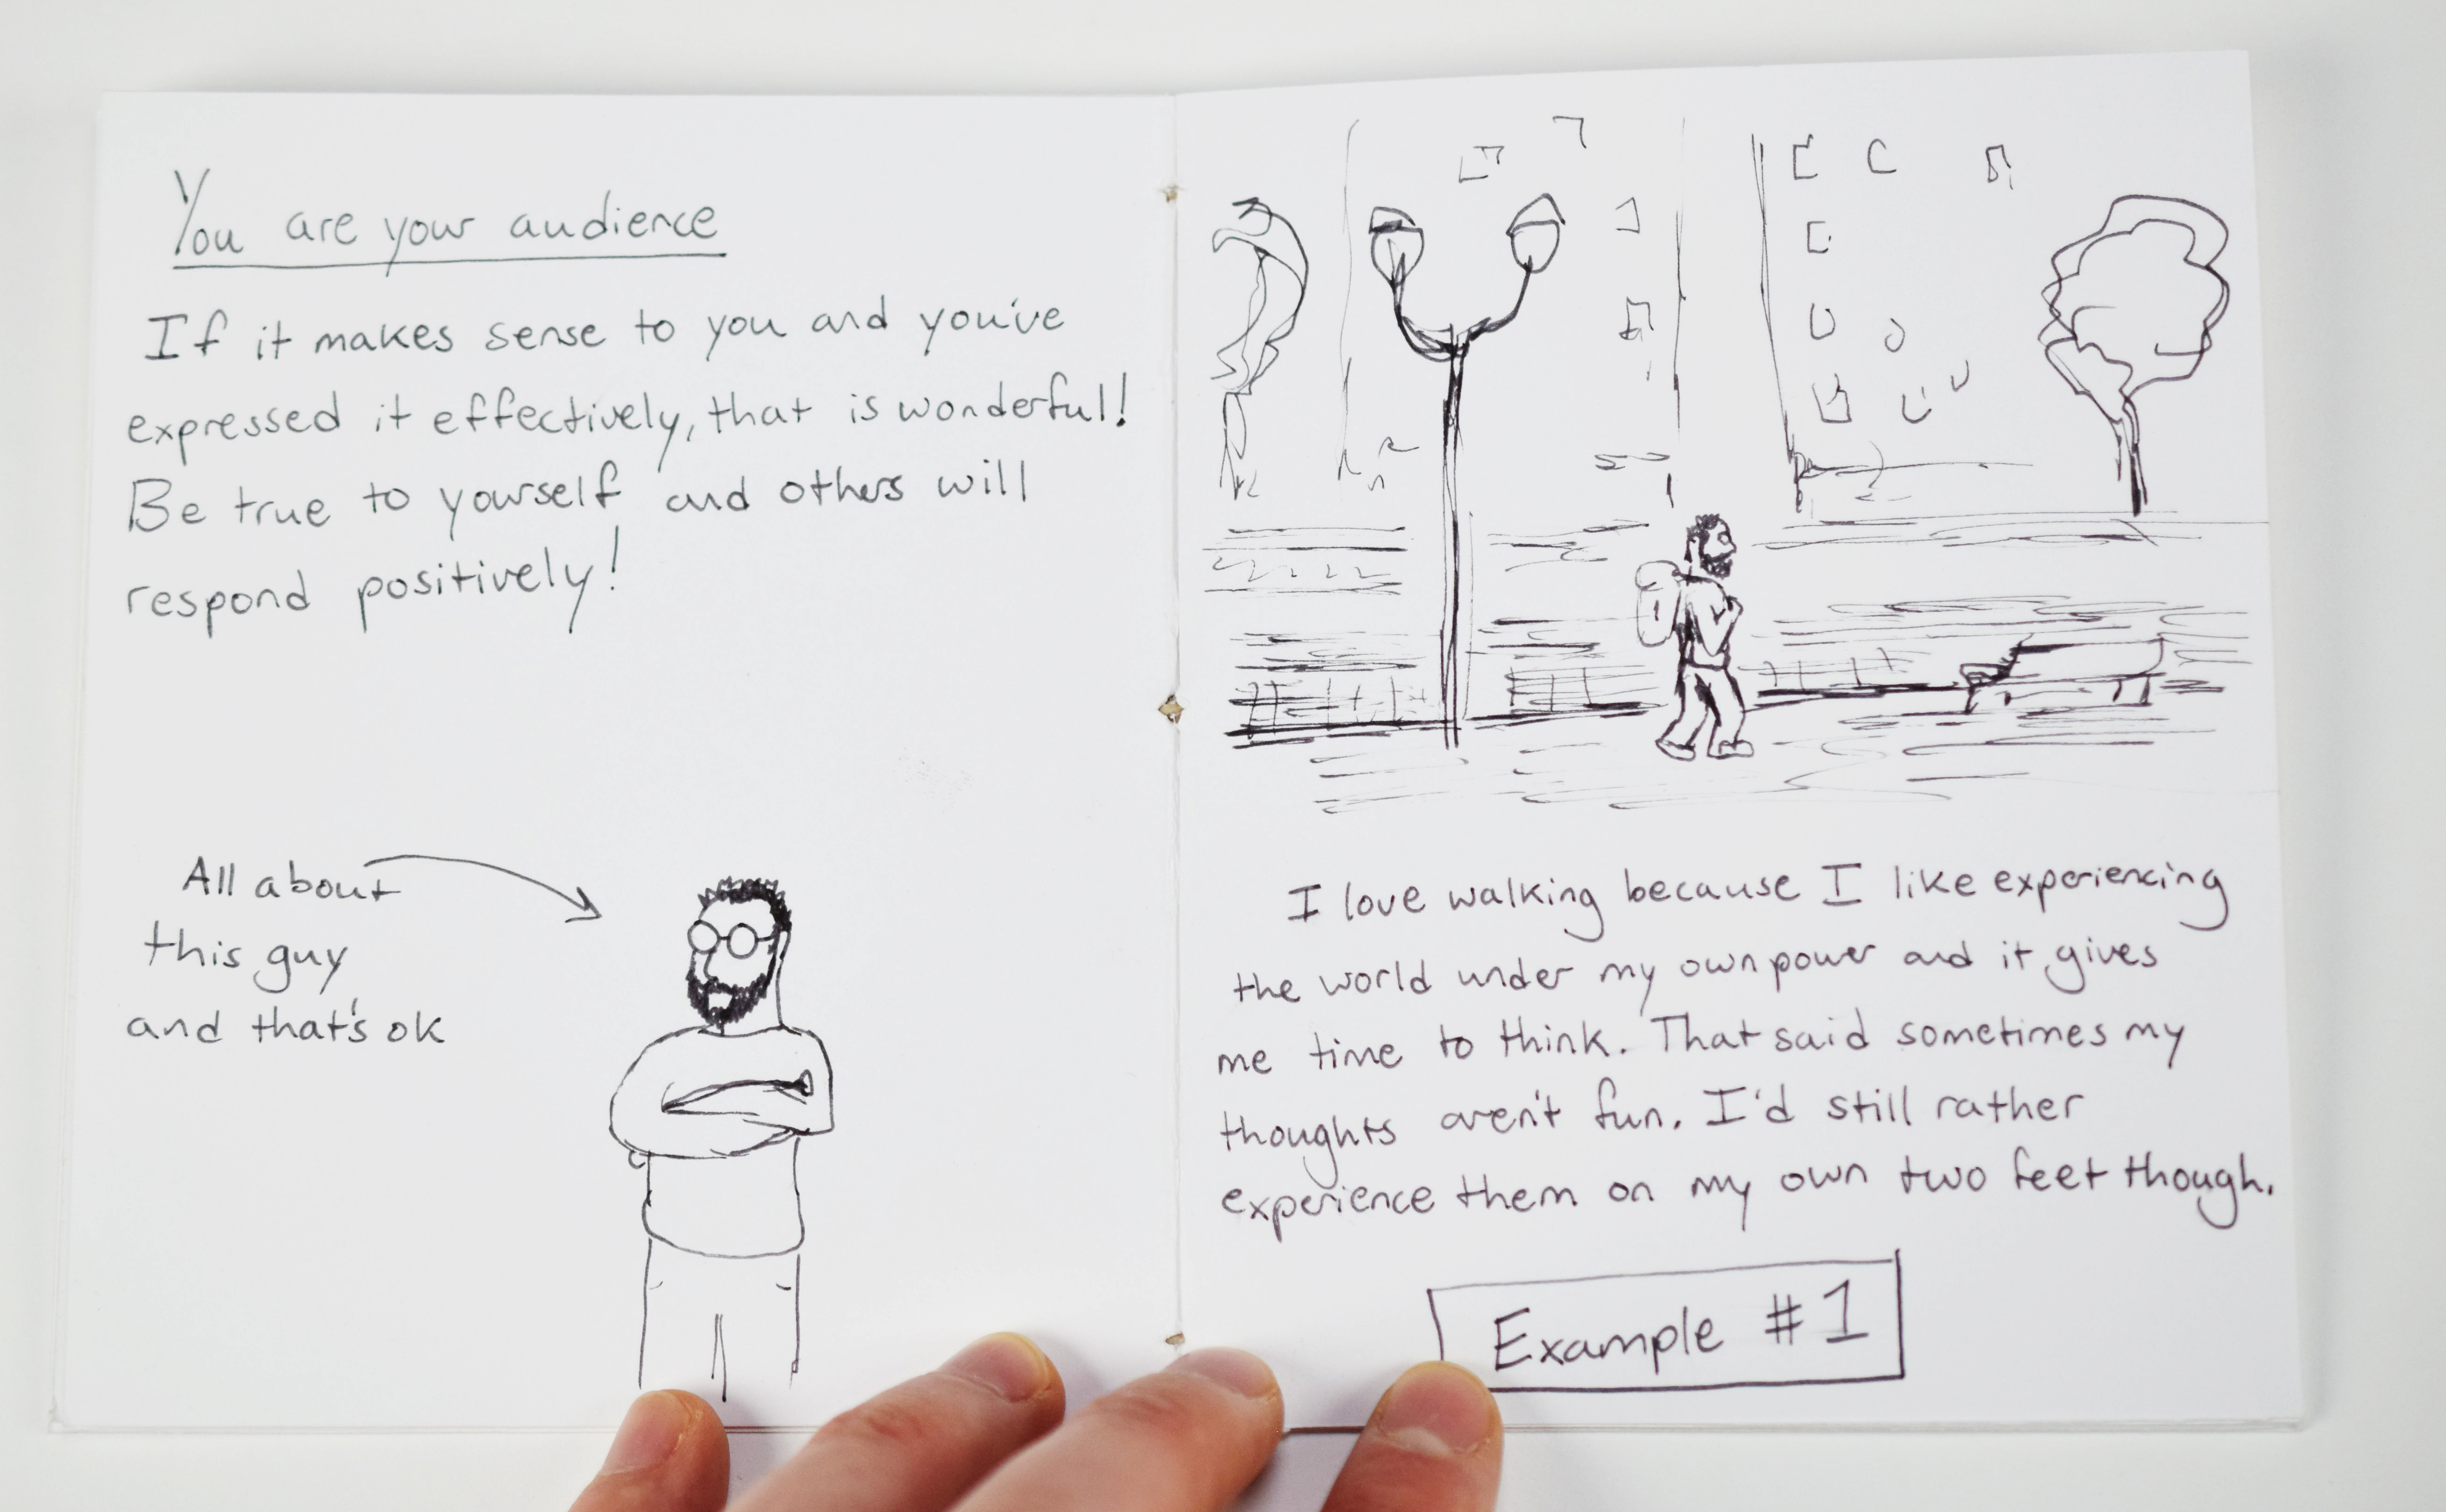 You are your audience
If it makes sense to you and you've
expressed it effectively, that is wonderful!
Be true to yourself and others will
respond positively!
All about
this guy
and that's ok
I love walking because I like experiencing
the world under my own power and it gives
me time to think. That said sometimes my
thoughts aren't fun. I'd still rather
experience them on my own two feet though.
Example #1